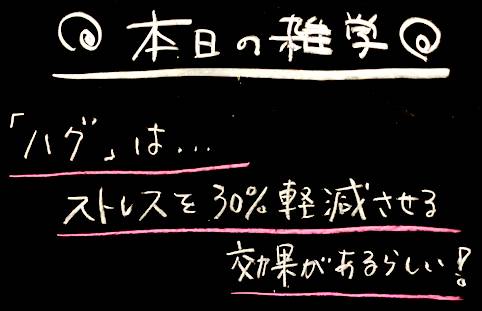 本日の雑学
「ハグ」は...
ストレスを30%軽減させる
効果があるらしい!